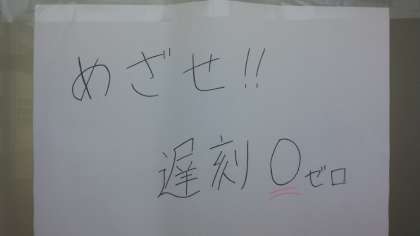 めざせ!!
遅刻0ゼロ